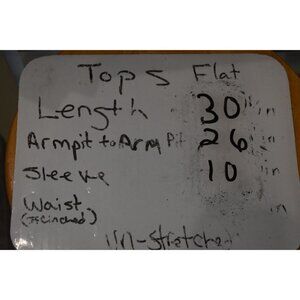 Tops Flat
Length 30 in
Armpit to Arm Pit 26 in
Sleeve 10 in
Waist
(if cinched)
Un-stretched